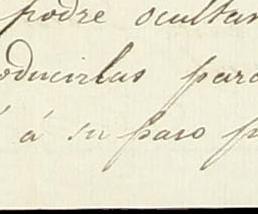 podre ocultar
oducirlas para
á su paso p